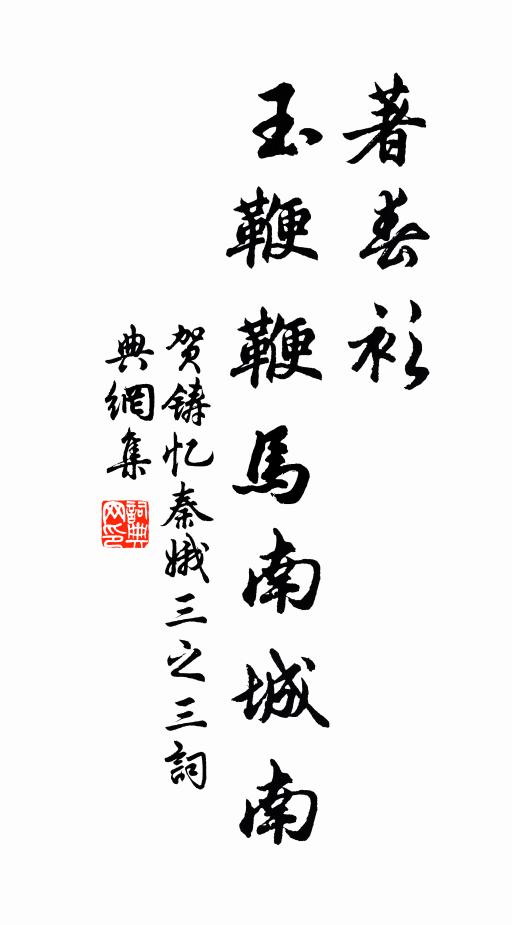 著春衫
玉鞭鞭馬南城南
贺鑄忆秦娥三之三詞
典網集
詞典网印